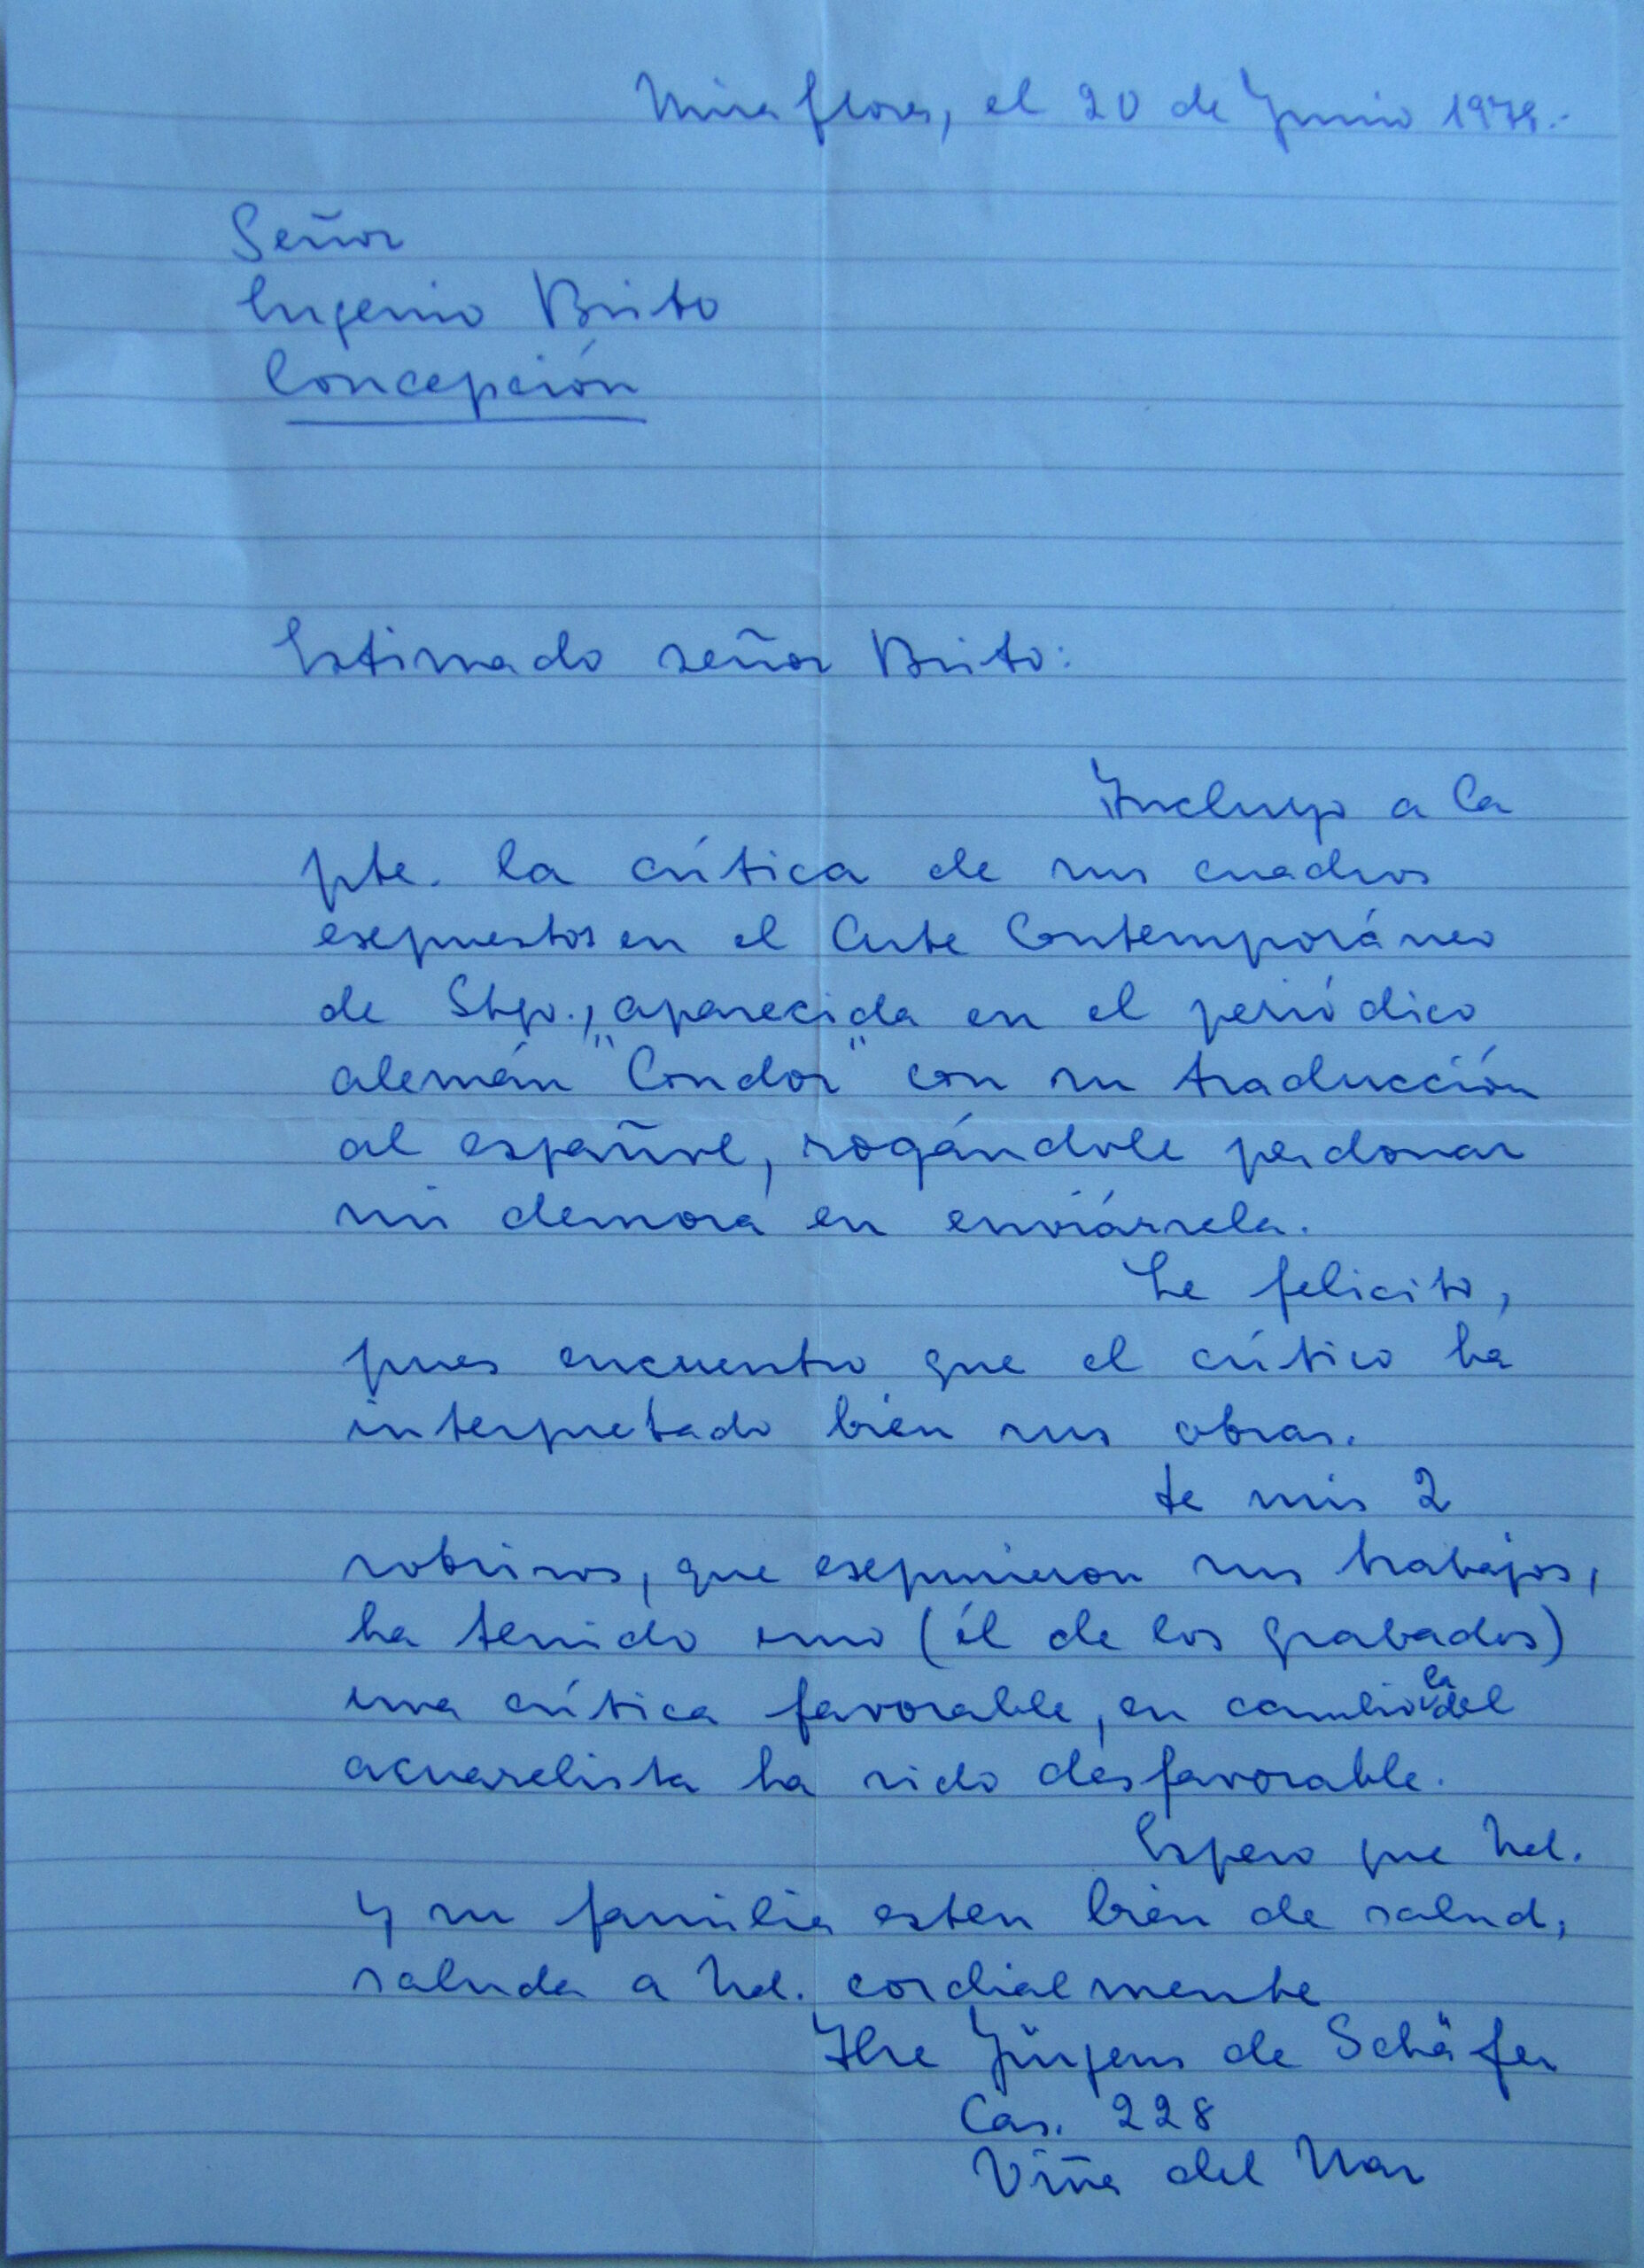 Miraflores, el 20 de Junio
Señor
Eugenio Brito
Concepción
Estimado señor Brito:
Incluyo a la
pte. la crítica de sus cuadros
expuestos en el Arte Contemporáneo
de Stgo., aparecida en el periódico
alemán "Condor" con su traducción
al español, rogándole perdonar
mi demora en enviársela.
Le felicito,
pues encuentro que el crítico ha
interpretado bien sus obras.
De mis 2
sobrinos, que expusieron sus trabajos,
ha tenido uno (él de los grabados)
una crítica favorable, en cambio la del
acuarelista ha sido desfavorable.
Espero que Ud.
y su familia esten bien de salud,
saluda a Ud. cordialmente
Ilse Jürgens de Schäfer
Cas. 228
Viña del Mar